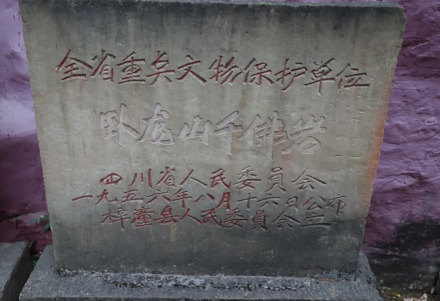 全省重点文物保护单位
卧虎山千佛岩
四川省人民委员会
一九五六年八月十六日公布
梓潼县人民委员会立